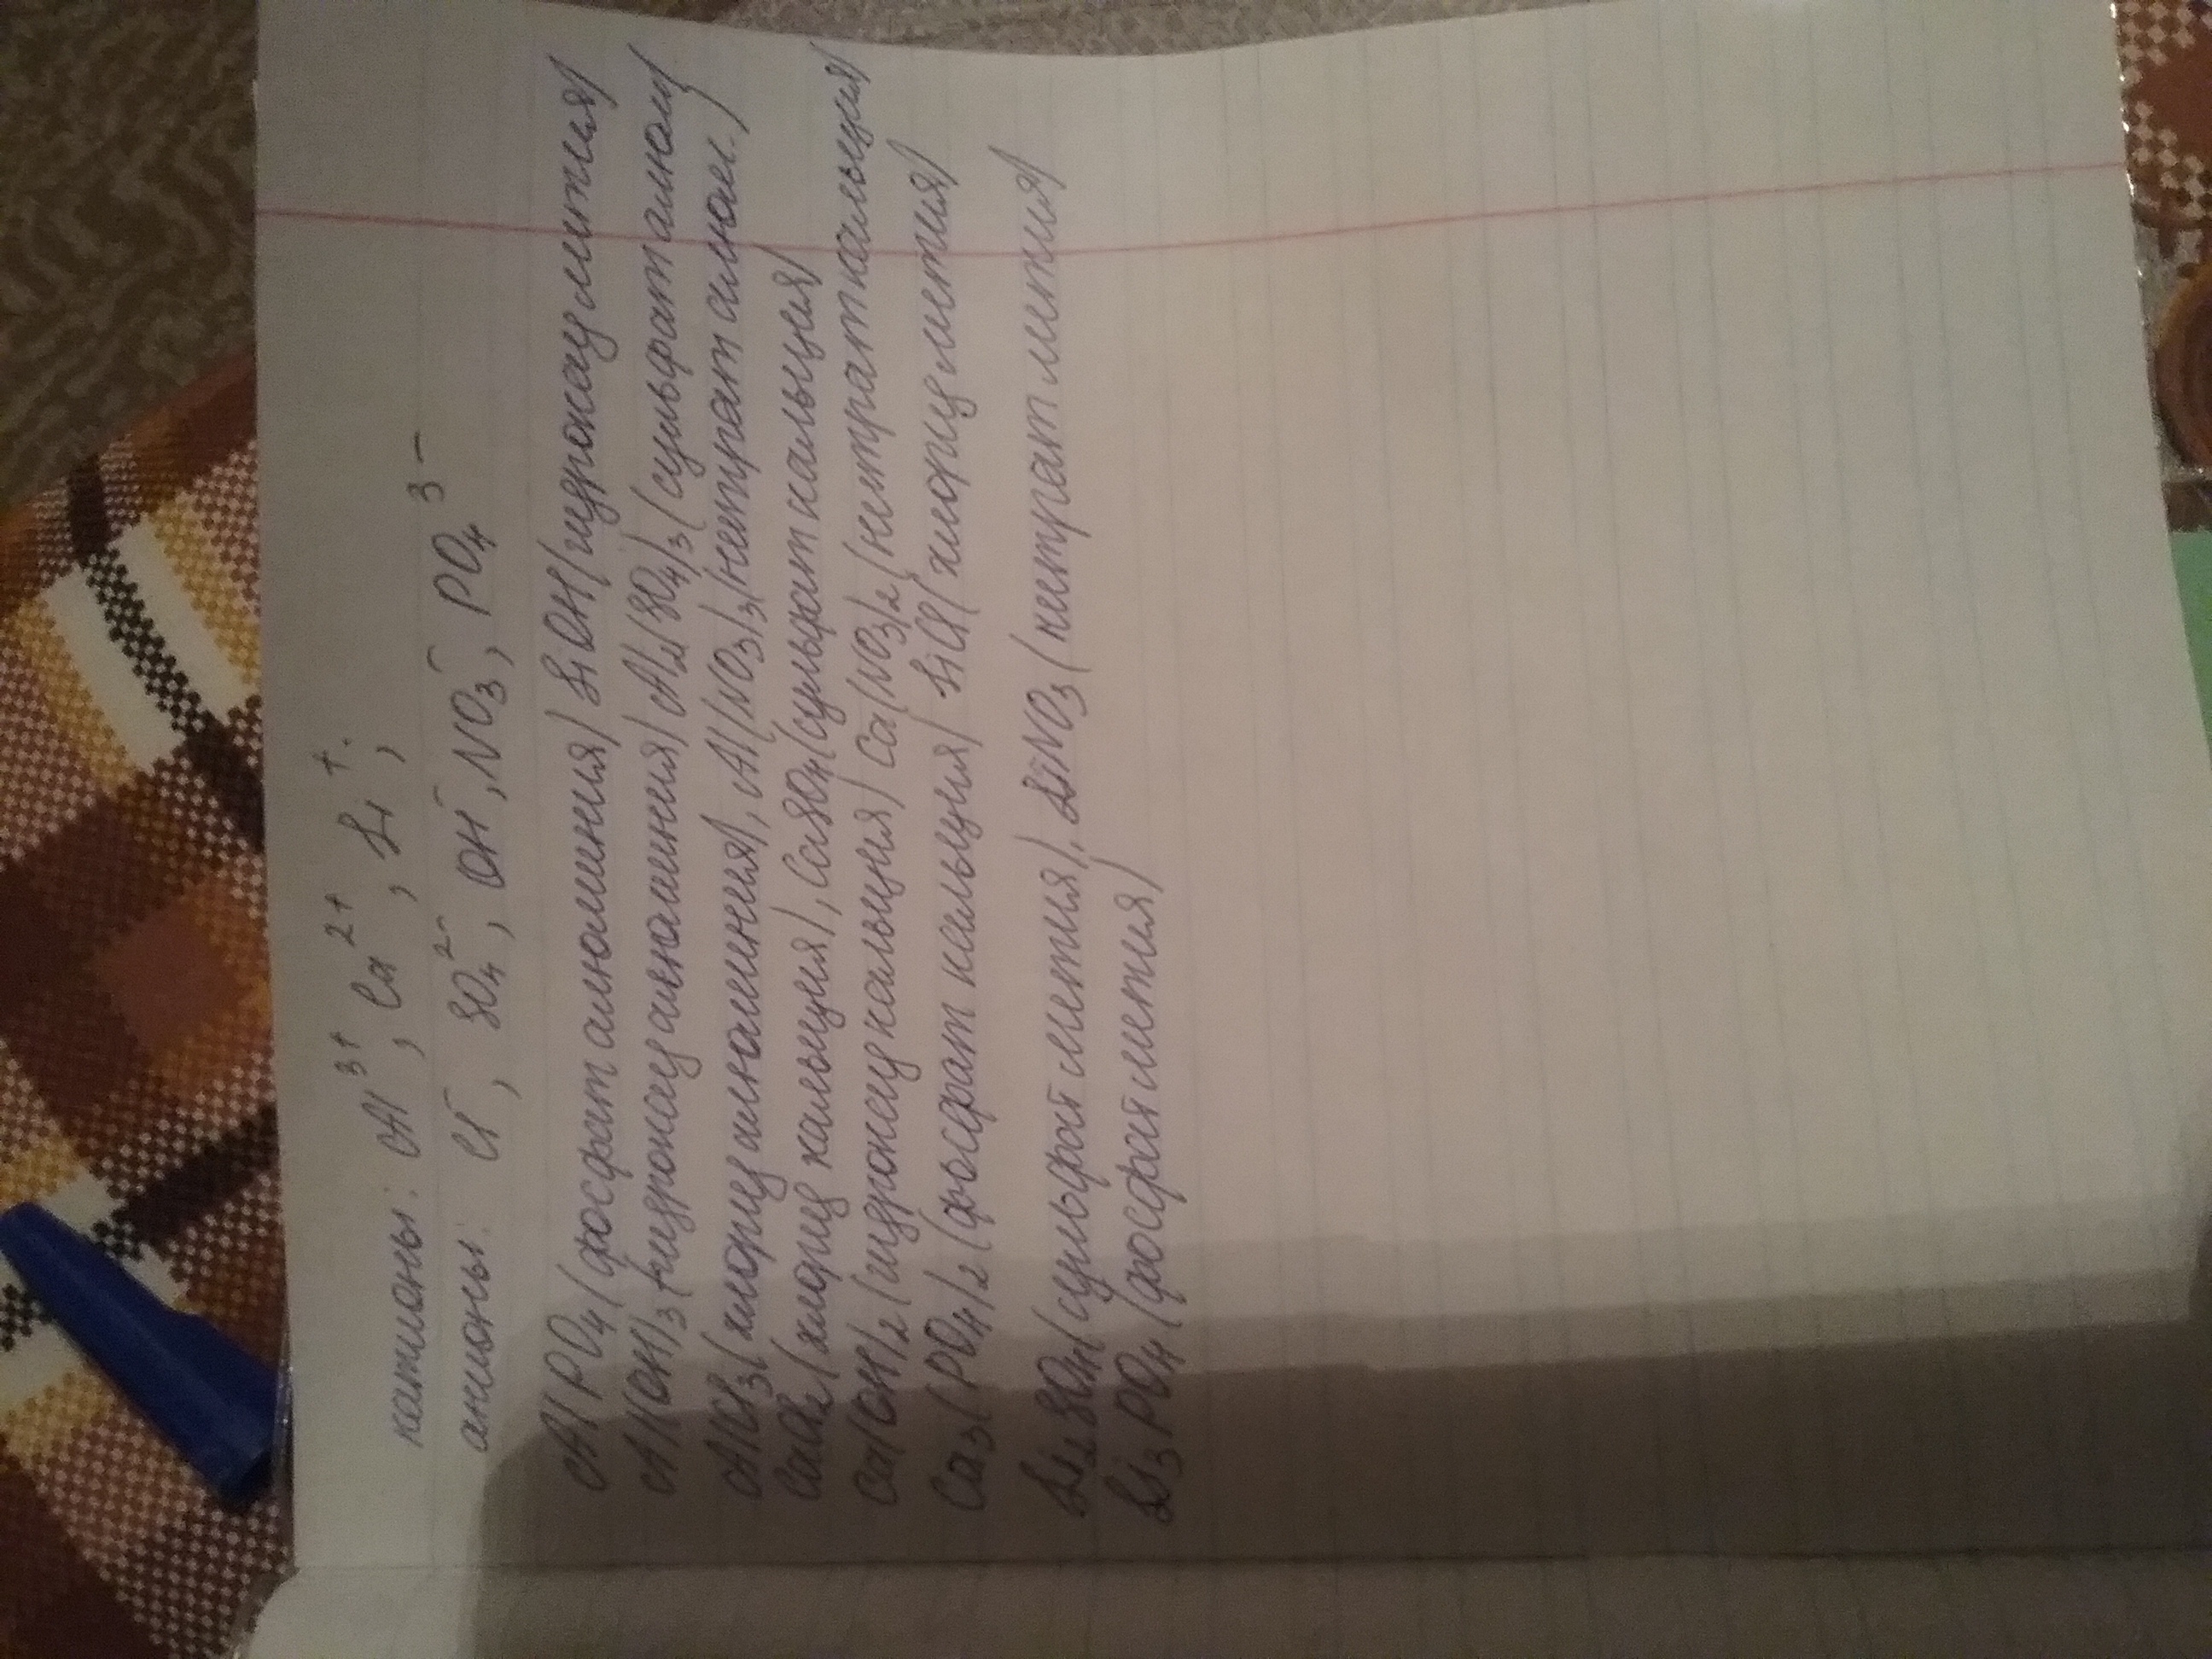 катионы: Al³⁺, Ca²⁺, Li⁺.
анионы: Cl⁻, SO₄²⁻, OH⁻, NO₃⁻, PO₄³⁻
AlPO₄ (фосфат алюминия) LiOH (гидроксид лития)
Al(OH)₃ (гидроксид алюминия) Al₂(SO₄)₃ (сульфат алюм)
AlCl₃ (хлорид алюминия), Al(NO₃)₃ (нитрат алюм.)
CaCl₂ (хлорид кальция), CaSO₄ (сульфат кальция)
Ca(OH)₂ (гидроксид кальция) Ca(NO₃)₂ (нитрат кальция)
Ca₃(PO₄)₂ (фосфат кальция) LiCl (хлорид лития)
Li₂SO₄ (сульфат лития), LiNO₃ (нитрат лития)
Li₃PO₄ (фосфат лития)